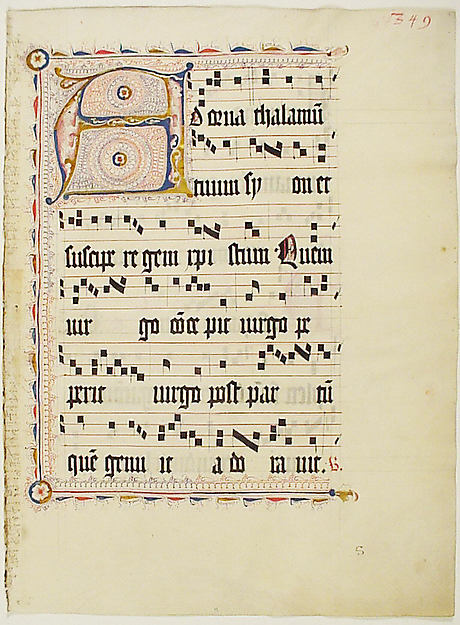 349
Adorna thalamū
tuum sy on et
suscipe re gem xpi stum Quem
uir go cōce pit uirgo pe
perit uirgo post par tū
quē genu it a do ra uit. R.
S